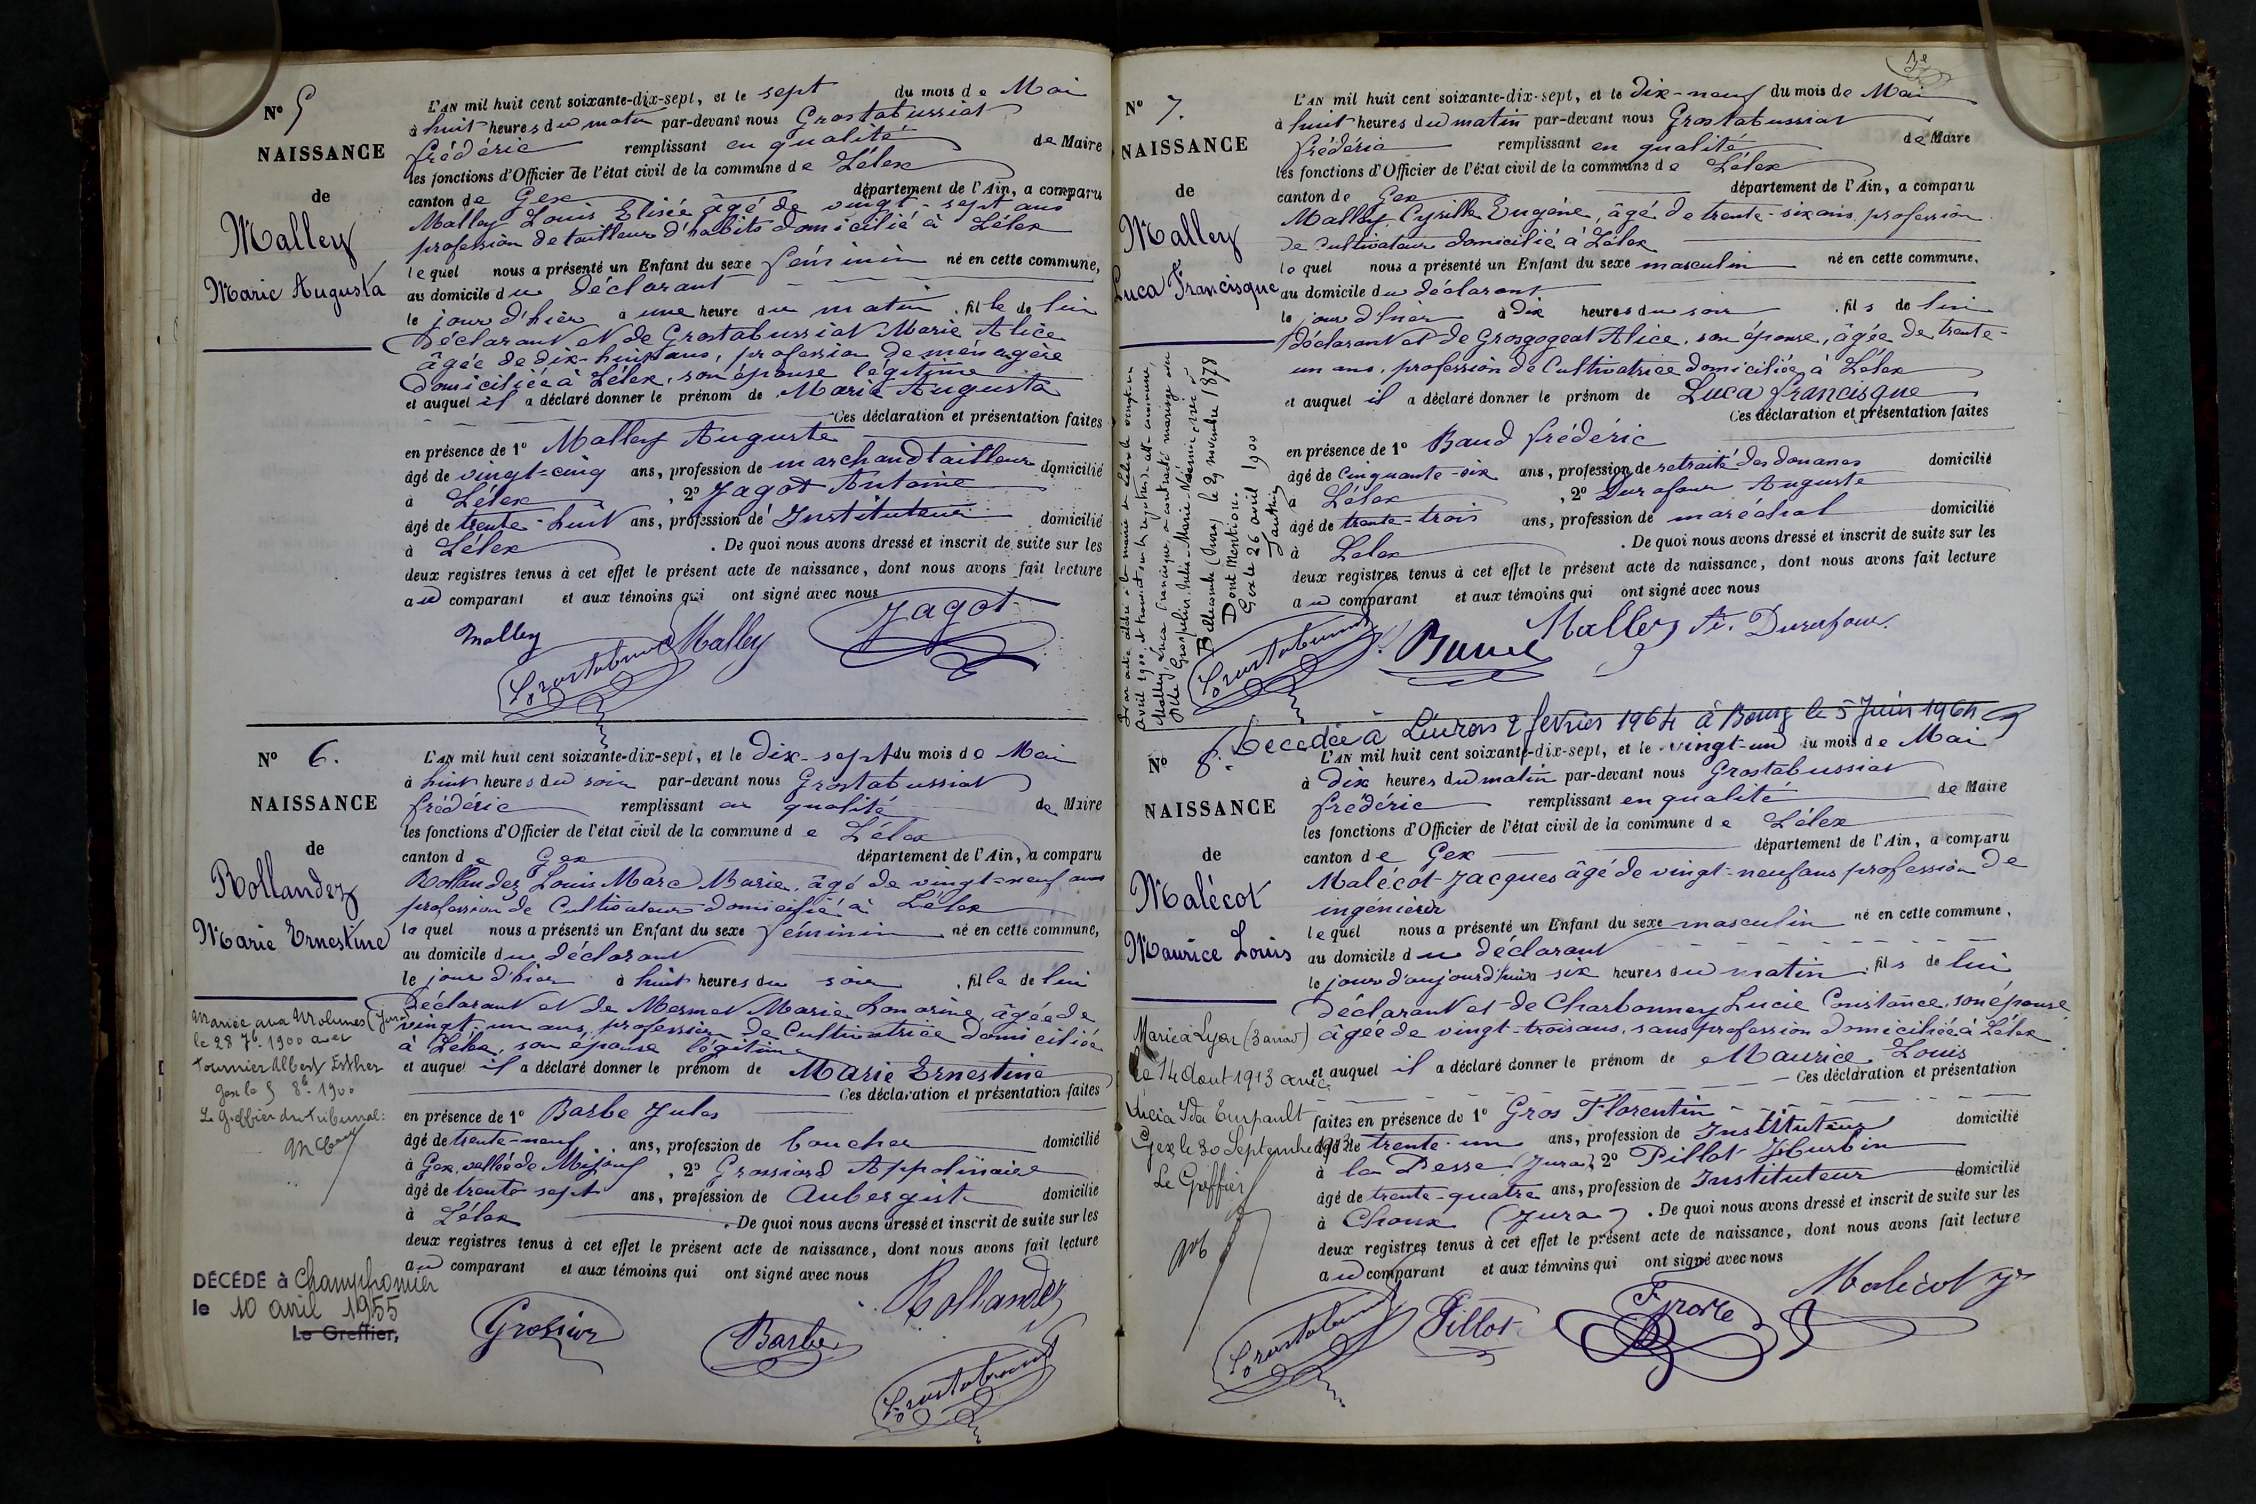 N° 5
NAISSANCE
de
Malley
Marie Augusta
L'AN mil huit cent soixante-dix-sept, et le sept du mois de Mai
à huit heures du matin par-devant nous Grostabussiat
frédéric remplissant en qualité de Maire
les fonctions d'Officier de l'état civil de la commune de Lélex
canton de Gex département de l'Ain, a comparu
Malley Louis Elisée âgé de vingt-sept ans
profession de tailleur d'habits domicilié à Lélex
lequel nous a présenté un Enfant du sexe féminin né en cette commune,
au domicile du déclarant
le jour d'hier à une heure du matin, fille de lui
déclarant et de Grostabussiat Marie Alice
âgée de dix-huit ans, profession de ménagère
domiciliée à Lélex, son épouse légitime
et auquel il a déclaré donner le prénom de Marie Augusta
Ces déclaration et présentation faites
en présence de 1° Malley Auguste
âgé de vingt-cinq ans, profession de marchand tailleur domicilié
à Lélex, 2° Jagot Antoine
âgé de trente-huit ans, profession de Instituteur domicilié
à Lélex. De quoi nous avons dressé et inscrit de suite sur les
deux registres tenus à cet effet le présent acte de naissance, dont nous avons fait lecture
au comparant et aux témoins qui ont signé avec nous
Malley Malley Jagot
Grostabussiat
N° 6.
NAISSANCE
de
Rollandez
Marie Ernestine
Mariée aux Molunes (Jura)
le 28 7b. 1900 avec
Tournier Albert Esther
Gex le 5 8b. 1900
Le Greffier du Tribunal:
DÉCÉDÉ à Champfromier
le 10 avril 1955
Le Greffier,
L'AN mil huit cent soixante-dix-sept, et le dix-sept du mois de Mai
à huit heures du soir par-devant nous Grostabussiat
frédéric remplissant en qualité de Maire
les fonctions d'Officier de l'état civil de la commune de Lélex
canton de Gex département de l'Ain, a comparu
Rollandez Louis Marc Marie, âgé de vingt-neuf ans
profession de Cultivateur domicilié à Lélex
lequel nous a présenté un Enfant du sexe féminin né en cette commune,
au domicile du déclarant
le jour d'hier à huit heures du soir, fille de lui
déclarant et de Mermet Marie honorine, âgée de
vingt-un ans, profession de Cultivatrice domiciliée
à Lélex, son épouse légitime
et auquel il a déclaré donner le prénom de Marie Ernestine
Ces déclaration et présentation faites
en présence de 1° Barbe Jules
âgé de trente-neuf ans, profession de boucher domicilié
à Gex, vallée de Mijoux, 2° Grossiord Appolinaire
âgé de trente sept ans, profession de Aubergiste domicilié
à Lélex. De quoi nous avons dressé et inscrit de suite sur les
deux registres tenus à cet effet le présent acte de naissance, dont nous avons fait lecture
au comparant et aux témoins qui ont signé avec nous
Rollandez
Barbe
Grostabussiat
N° 7.
NAISSANCE
de
Malley
Luca Francisque
avril 1900, et transcrit sur les registres de cette commune,
Malley Luca Francisque a contracté mariage avec
Delle Grospelier Julia Marie Noémie, née à
Bellecombe (Jura) le 29 novembre 1878
Dont Mention.
Gex le 26 avril 1900
L'AN mil huit cent soixante-dix-sept, et le dix-neuf du mois de Mai
à huit heures du matin par-devant nous Grostabussiat
frédéric remplissant en qualité de Maire
les fonctions d'Officier de l'état civil de la commune de Lélex
canton de Gex département de l'Ain, a comparu
Malley Cyrille Eugène, âgé de trente-six ans, profession
de Cultivateur domicilié à Lélex
lequel nous a présenté un Enfant du sexe masculin né en cette commune,
au domicile du déclarant
le jour d'hier à dix heures du soir, fils de lui
déclarant et de Grosgogeat Alice, son épouse, âgée de trente-
un ans, profession de Cultivatrice domiciliée à Lélex
et auquel il a déclaré donner le prénom de Luca francisque
Ces déclaration et présentation faites
en présence de 1° Baud frédéric
âgé de Cinquante-six ans, profession de retraité des douanes domicilié
à Lélex, 2° Durafour Auguste
âgé de trente-trois ans, profession de maréchal domicilié
à Lélex. De quoi nous avons dressé et inscrit de suite sur les
deux registres tenus à cet effet le présent acte de naissance, dont nous avons fait lecture
au comparant et aux témoins qui ont signé avec nous
Malley A. Durafour
Grostabussiat
décédée à Livron 2 février 1964 à Bourg le 5 Juin 1964
N° 8.
NAISSANCE
de
Malécot
Maurice Louis
Marié à Lyon (3 arrond)
le 14 Aout 1913 avec
Lucia Ida
Gex le 30 Septembre 1913
Le Greffier
L'AN mil huit cent soixante-dix-sept, et le vingt-un du mois de Mai
à Dix heures du matin par-devant nous Grostabussiat
frédéric remplissant en qualité de Maire
les fonctions d'Officier de l'état civil de la commune de Lélex
canton de Gex département de l'Ain, a comparu
Malécot Jacques âgé de vingt-neuf ans profession de
ingénieur
lequel nous a présenté un Enfant du sexe masculin né en cette commune,
au domicile du déclarant
le jour d'aujourd'hui à six heures du matin, fils de lui
déclarant et de Charbonney Lucie Constance, son épouse
âgée de vingt-trois ans, sans profession domiciliée à Lélex
et auquel il a déclaré donner le prénom de Maurice Louis
Ces déclaration et présentation
faites en présence de 1° Gros Florentin
âgé de trente-un ans, profession de Instituteur domicilié
à la Pesse (Jura), 2° Pillot Hurbin
âgé de trente-quatre ans, profession de Instituteur domicilié
à Choux (Jura). De quoi nous avons dressé et inscrit de suite sur les
deux registres tenus à cet effet le présent acte de naissance, dont nous avons fait lecture
au comparant et aux témoins qui ont signé avec nous
Malécot
Grostabussiat Pillot